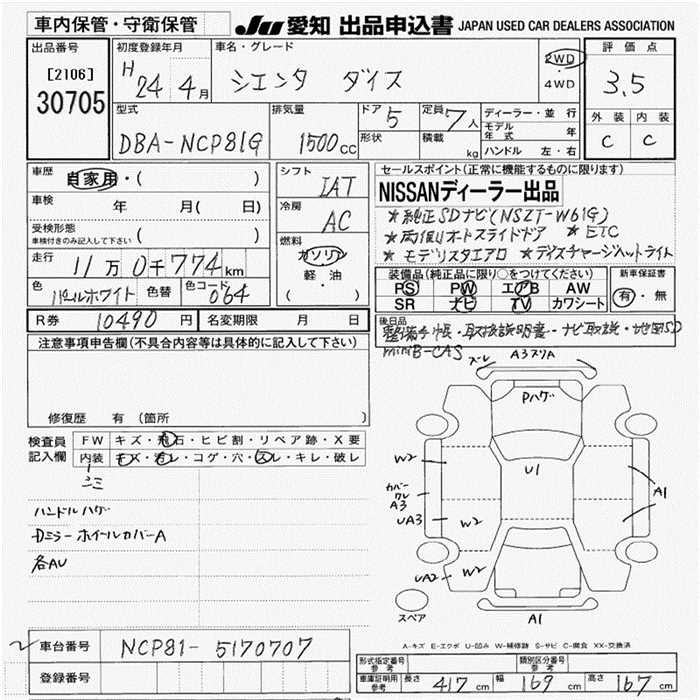 車内保管・守衛保管 JU 愛知 出品申込書 JAPAN USED CAR DEALERS ASSOCIATION
出品番号
[2106]
30705
初度登録年月
H 24 4月
車名・グレード
シエンタ ダイス
2WD
・
4WD
評価点
3.5
外装 内装
C C
型式
DBA-NCP81G
排気量
1500cc
ドア 5
形状
定員 7人
積載 kg
ディーラー・並行
モデル年式 年
ハンドル 左・右
車歴 自家用・( )
車検 年 月(日)
受検形態
車検付きのみ記入して下さい ( )
走行 11万0千774km
色 パールホワイト 色替 色コード 064
シフト IAT
冷房 AC
燃料 ガソリン
軽・油
( )
セールスポイント(正常に機能するものに限ります)
NISSANディーラー出品
★純正SDナビ(NSZT-W61G)
★両側オートスライドドア ★ETC
★モデリスタエアロ ★ディスチャージヘットライト
装備品(純正品に限り○をつけてください)
PS PW エアB AW
SR ナビ TV カワシート
新車保証書
有・無
R券 10490円 名変期限 月 日
後日品
整備手帳・取扱説明書・ナビ取説・地図SD
miniB-CAS
注意事項申告欄(不具合内容等は具体的に記入して下さい)
修復歴 有(箇所 )
検査員記入欄
FW キズ・飛石・ヒビ割・リペア跡・X要
内装 キズ・汚レ・コゲ・穴・スレ・キレ・破レ
シミ
ハンドルハゲ
Dミラー ホイールカバーA
各AU
ズレ A3スリA
Pハゲ
U1
W2
カバーワレ
A3
UA3
W2
A1
UA2
W2
A1
スペア
車台番号 NCP81-5170707
登録番号
A-キズ E-エクボ U-凹み W-補修跡 S-サビ C-腐食 XX-交換済
形式指定番号 参考
類別区分番号 参考
車庫証明用参考 長さ 417cm 幅 169cm 高さ 167cm